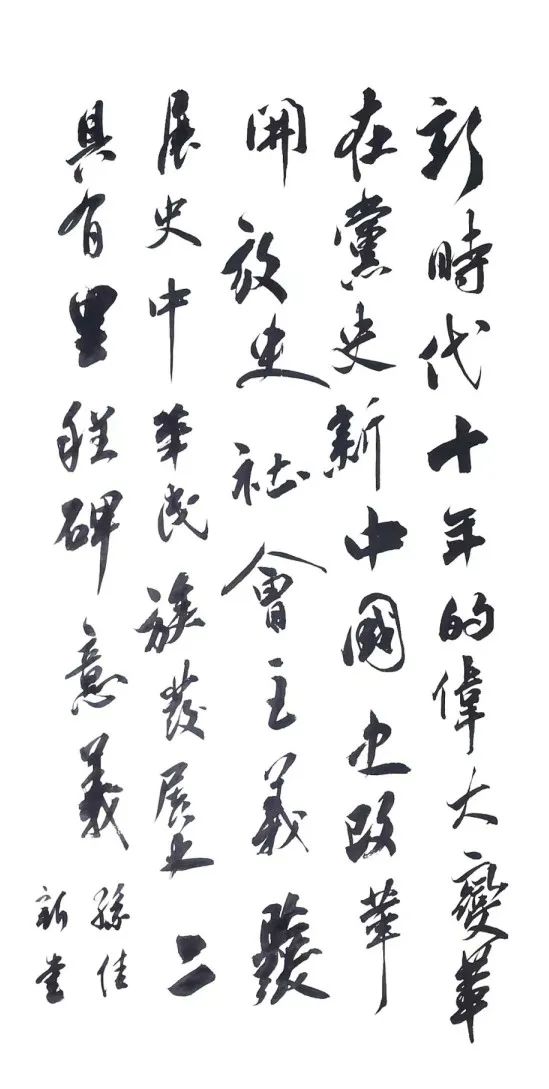 新時代十年的偉大變革
在黨史新中國史改革
開放史社會主義發
展史中華民族發展史上
具有里程碑意義
孫佳
新